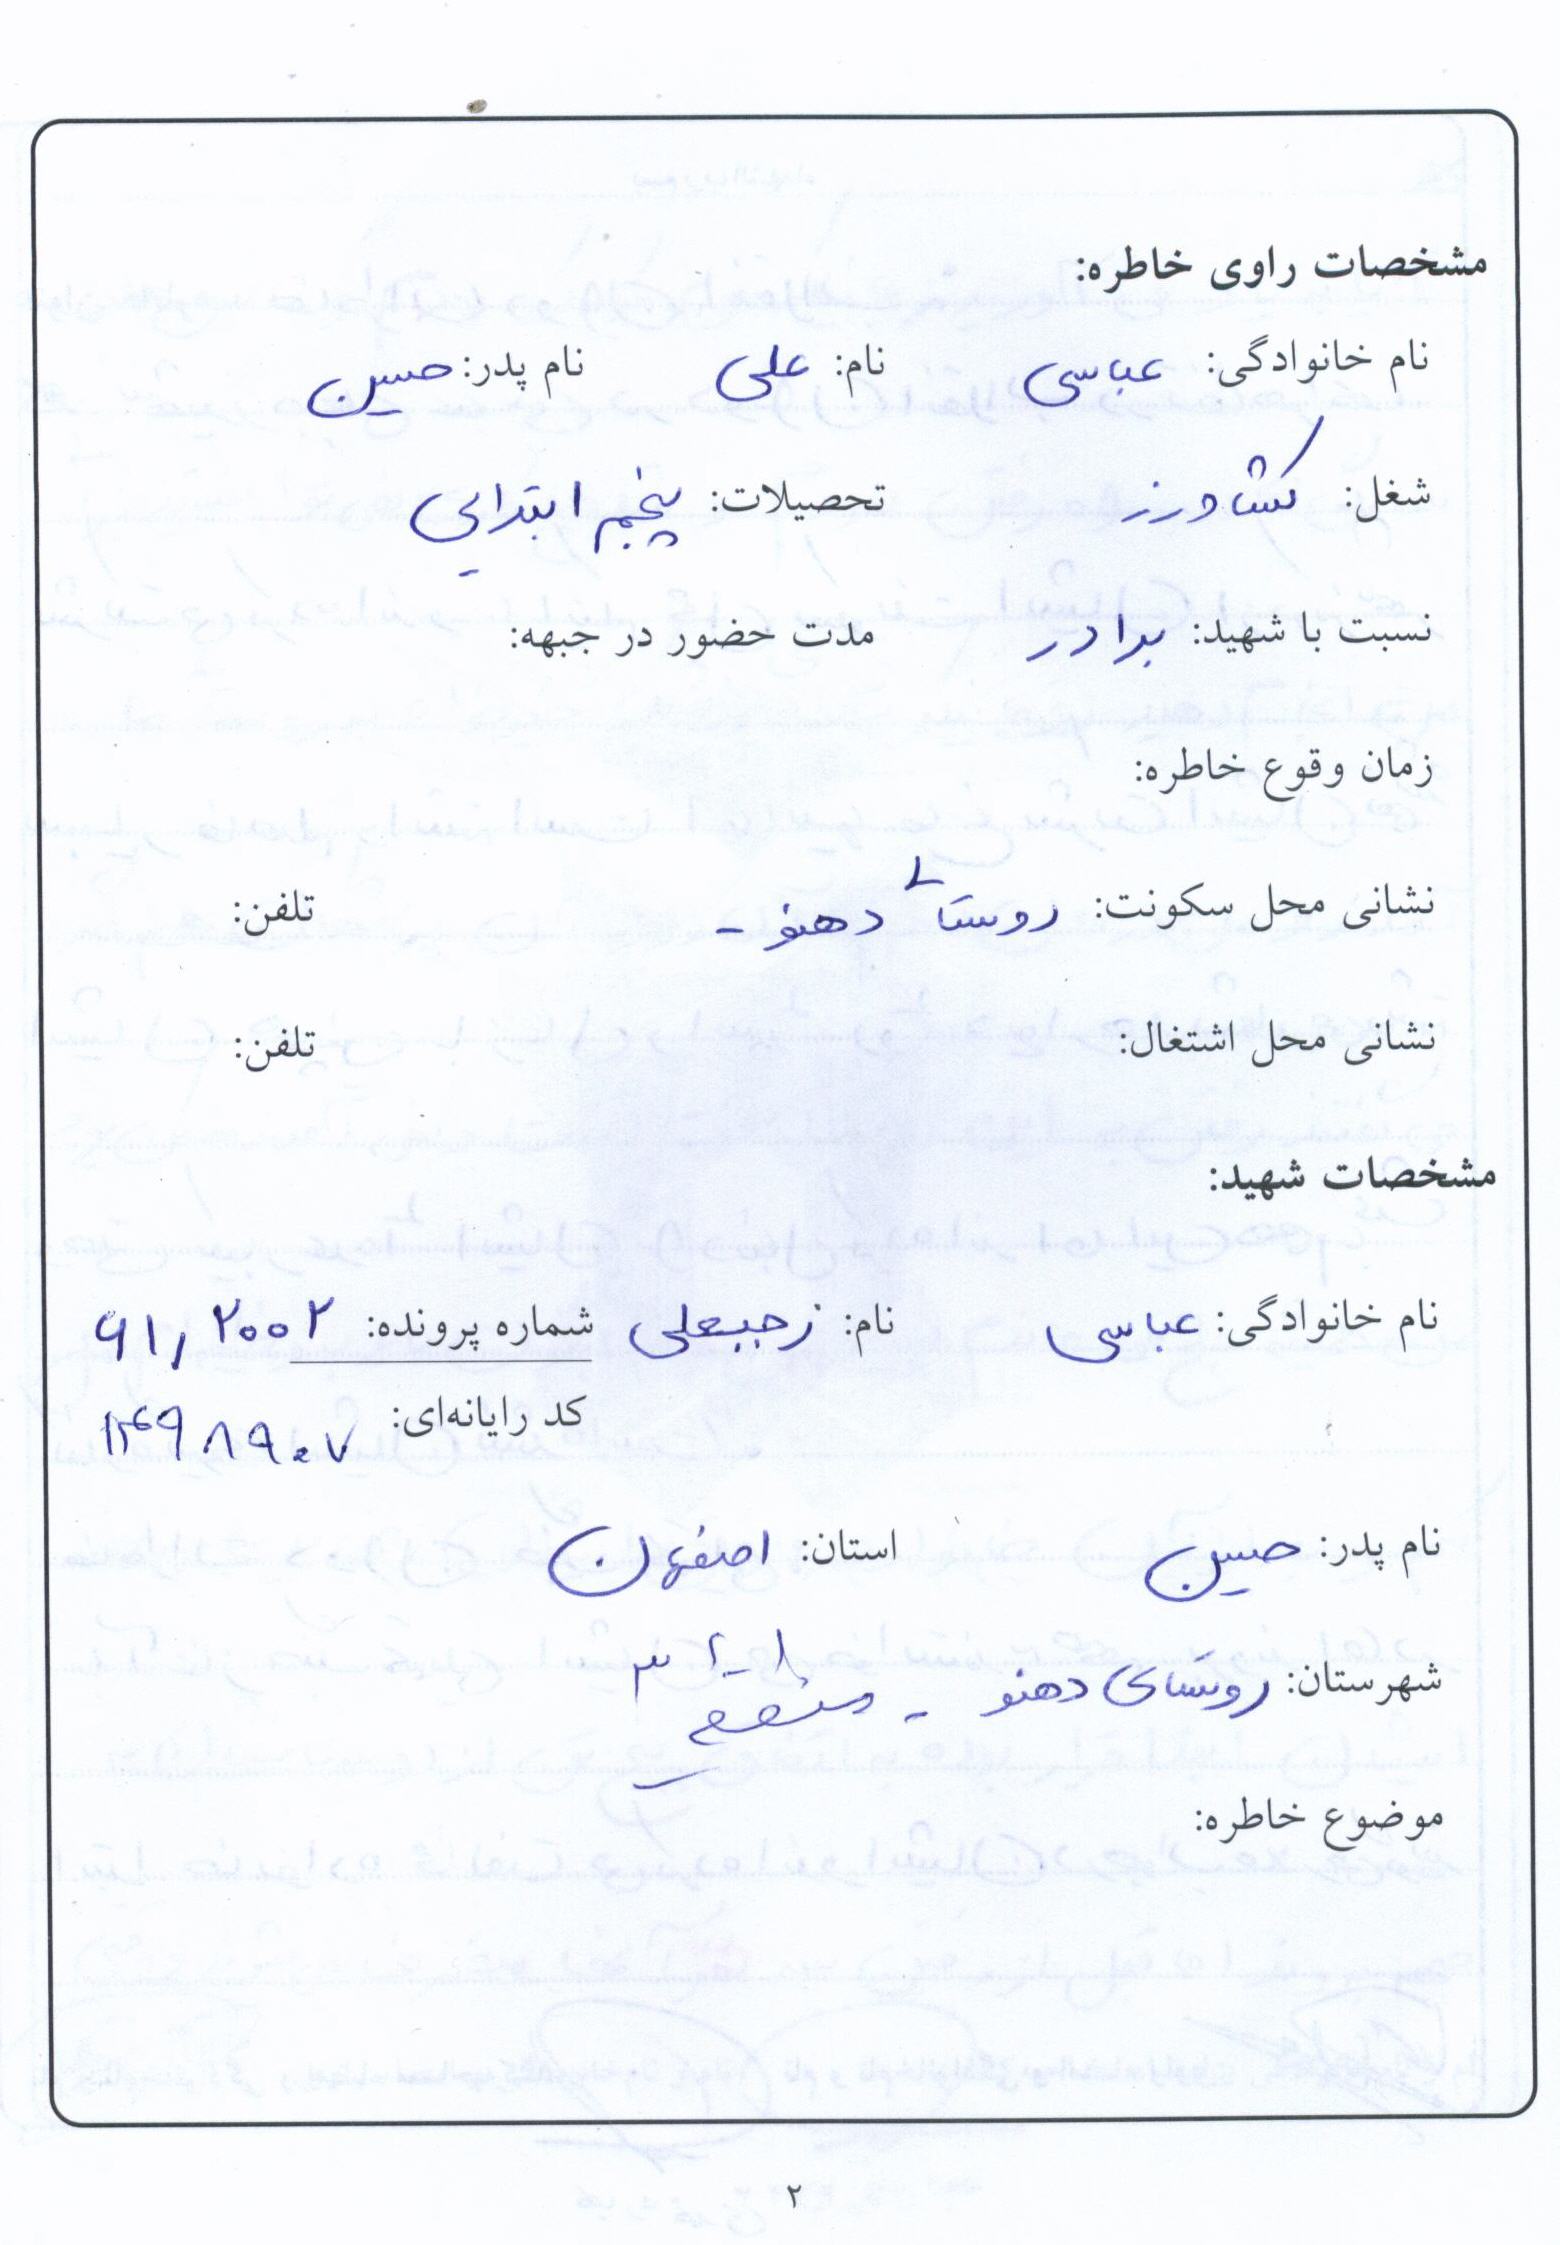 مشخصات راوی خاطره:
نام خانوادگی: عباسی نام: علی نام پدر: حسین
شغل: کشاورز تحصیلات: پنجم ابتدایی
نسبت با شهید: برادر مدت حضور در جبهه:
زمان وقوع خاطره:
نشانی محل سکونت: روستای دهنو - تلفن:
نشانی محل اشتغال: تلفن:
مشخصات شهید:
نام خانوادگی: عباسی نام: رجبعلی شماره پرونده: ۶۱/۲۰۰۲
کد رایانه‌ای:
نام پدر: حسین استان: اصفهان
شهرستان: روستای دهنو - منطقه ۳
موضوع خاطره:
۲